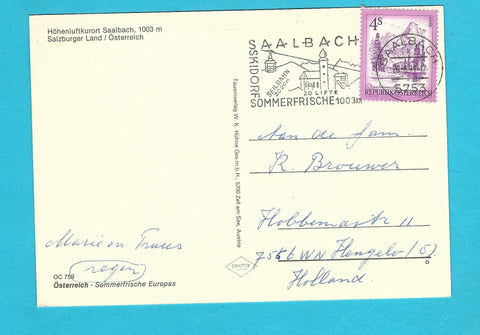 Höhenluftkurort Saalbach, 1003 m
Salzburger Land / Österreich
SAALBACH
SKIDORF
SEILBAHN
2020m
20 LIFTE
SOMMERFRISCHE 1003m
4S
REPUBLIK ÖSTERREICH
SAALBACH
5753
Aan de fam.
K. Brouwer
Hobbemastr 11
7556 WN Hengelo (O)
Holland
Marie en Truus
regen
OC 759
Österreich - Sommerfrische Europas
Tauernverlag W. K. Huhne Ges.m.b.H., 5700 Zell am See, Austria